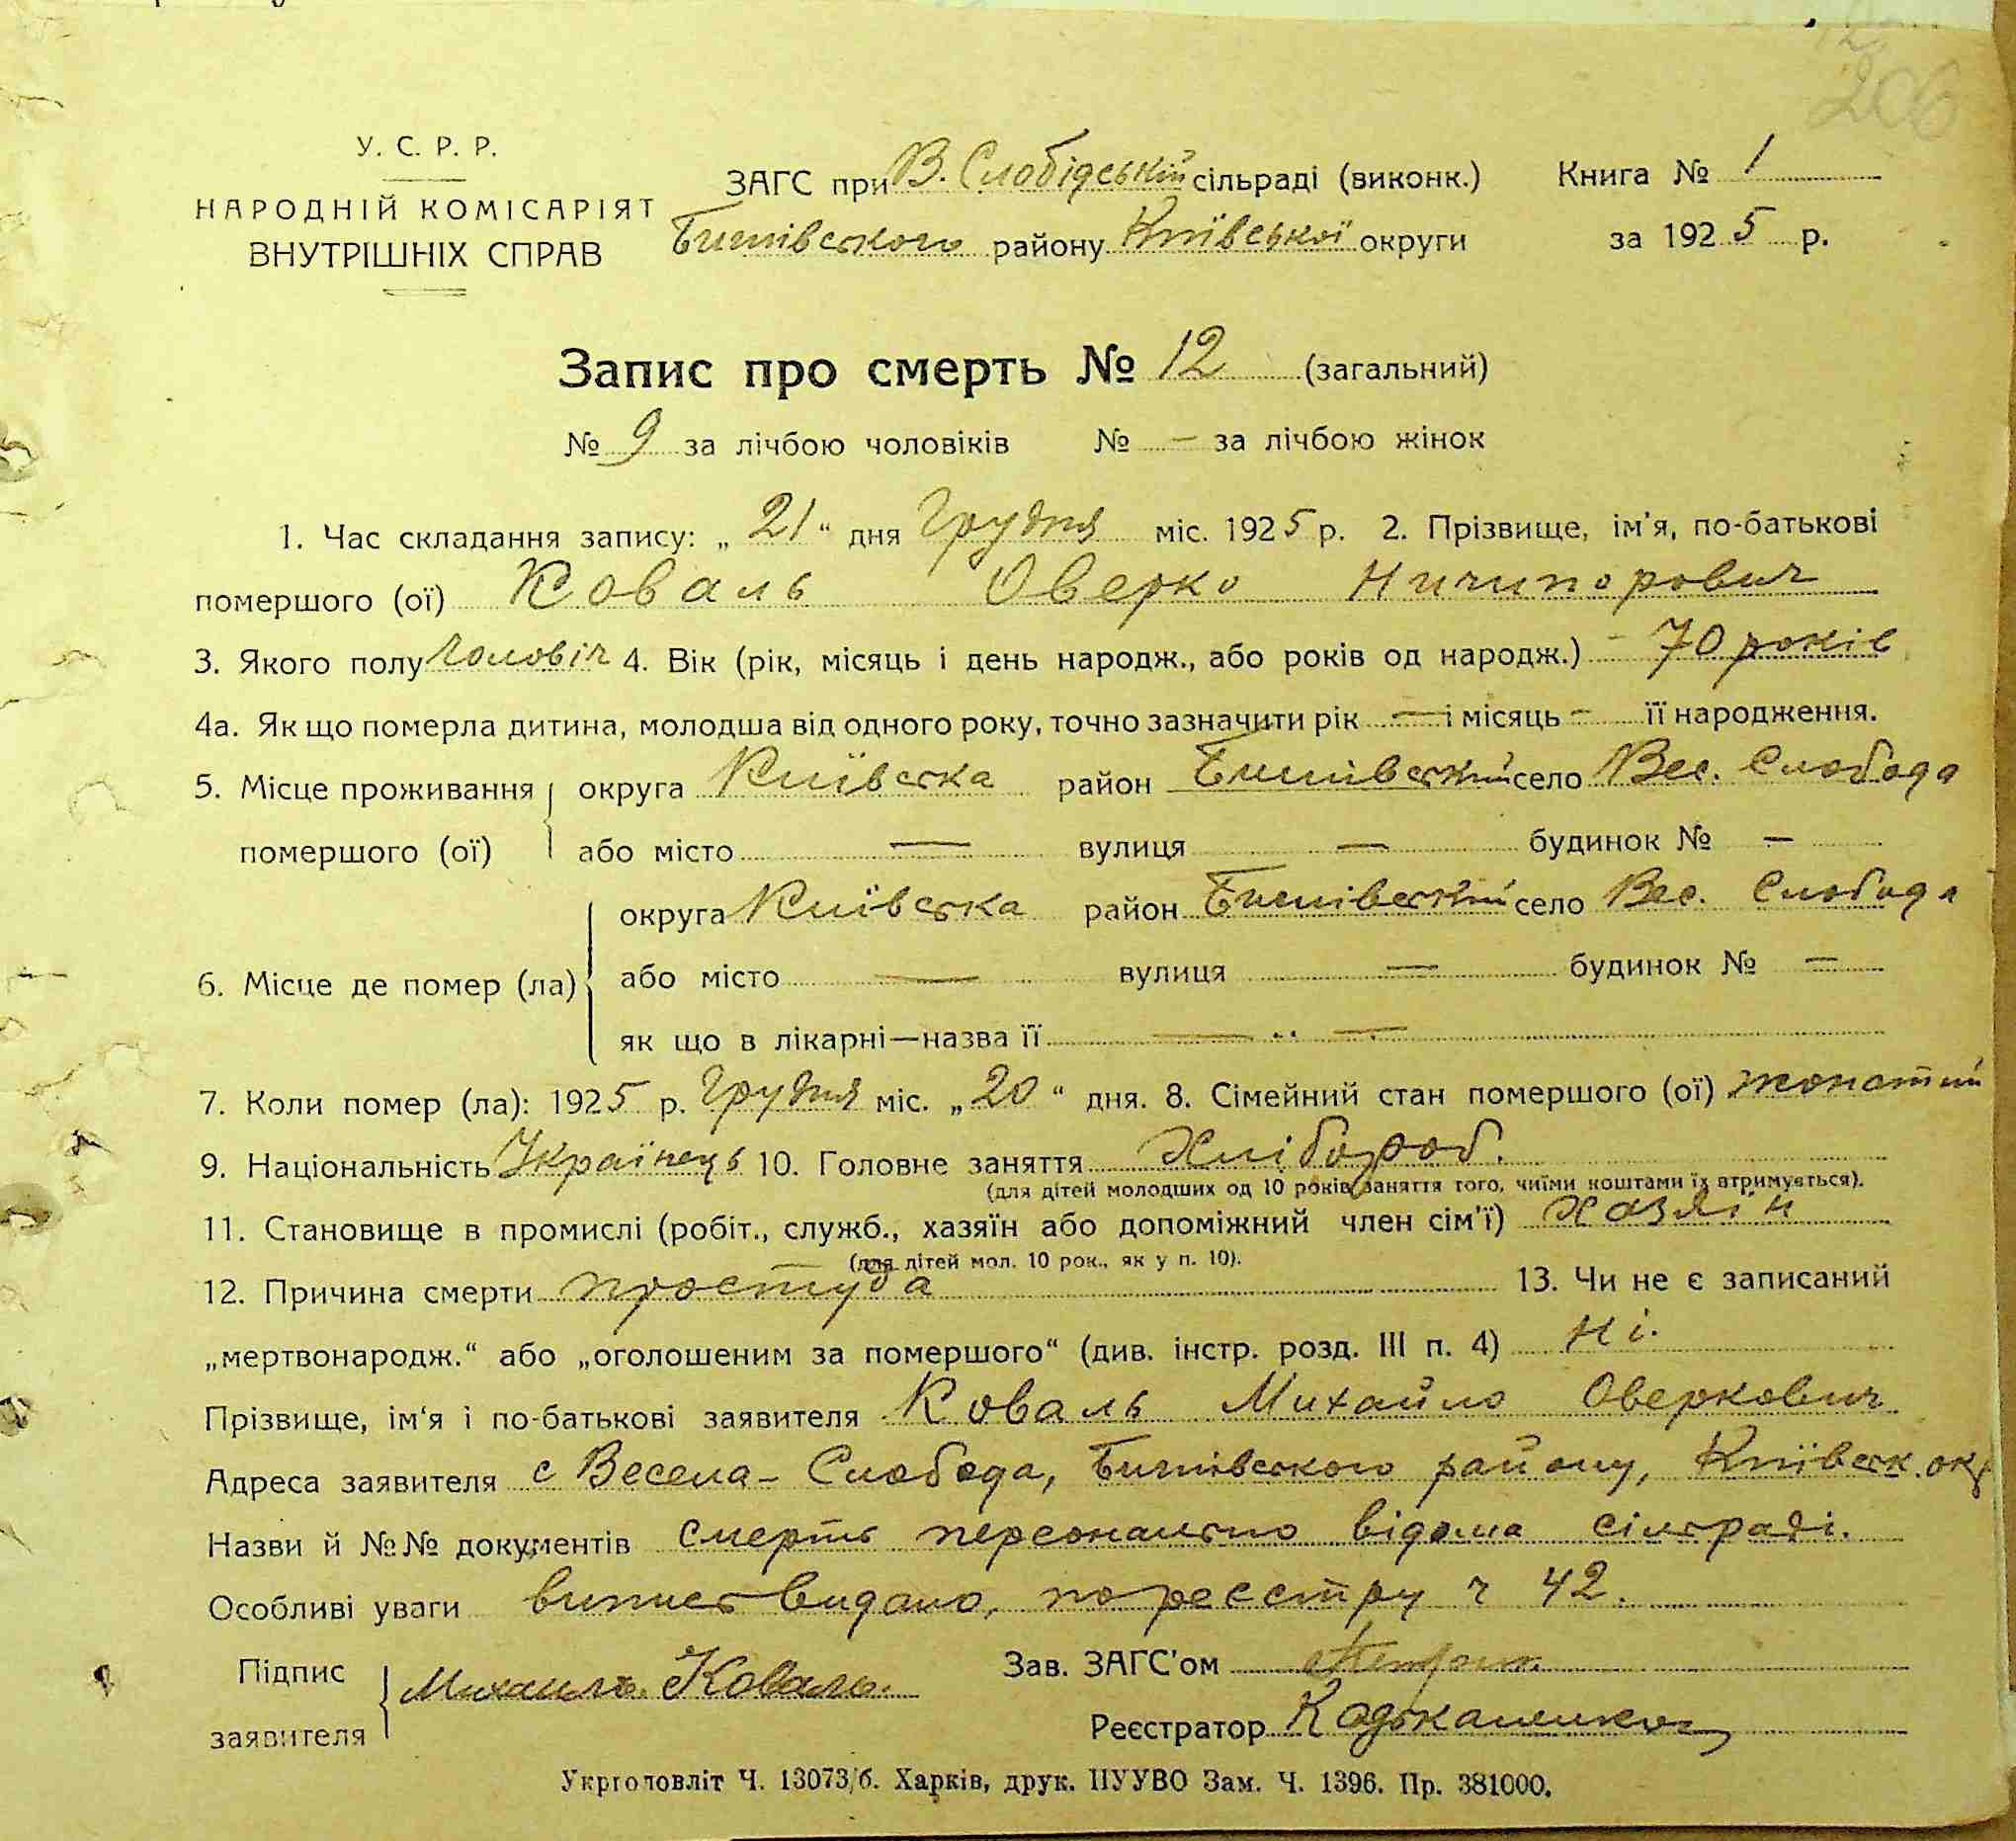 206
У. С. Р. Р.
НАРОДНІЙ КОМІСАРІЯТ
ВНУТРІШНІХ СПРАВ
ЗАГС при В. Слобідській сільраді (виконк.)
Бишівського району Київської округи
Книга № 1
за 1925 р.
Запис про смерть № 12 (загальний)
№ 9 за лічбою чоловіків № — за лічбою жінок
1. Час складання запису: „21“ дня Грудня міс. 1925 р. 2. Прізвище, ім'я, по-батькові
помершого (ої) Коваль Оверко Ничипорович
3. Якого полу чоловіч 4. Вік (рік, місяць і день народж., або років од народж.) — 70 років
4а. Як що померла дитина, молодша від одного року, точно зазначити рік — і місяць — її народження.
5. Місце проживання округа Київська район Бишівський село Вес. Слобода
помершого (ої) або місто — вулиця — будинок № —
округа Київська район Бишівський село Вес. Слобода
6. Місце де помер (ла) або місто — вулиця — будинок № —
як що в лікарні—назва її — „ —
7. Коли помер (ла): 1925 р. Грудня міс. „20“ дня. 8. Сімейний стан помершого (ої) жонатий
9. Національність Українець 10. Головне заняття Хлібороб.
(для дітей молодших од 10 років заняття того, чиїми коштами їх втримується).
11. Становище в промислі (робіт., служб., хазяїн або допоміжний член сім'ї) хазяїн
(для дітей мол. 10 рок., як у п. 10).
12. Причина смерти простуда 13. Чи не є записаний
„мертвонародж.“ або „оголошеним за помершого“ (див. інстр. розд. III п. 4) Ні.
Прізвище, ім'я і по-батькові заявителя Коваль Михайло Оверкович
Адреса заявителя с Весела-Слобода, Бишівського району, Київськ. окр
Назви й №№ документів смерть персонально відома сільраді.
Особливі уваги випис видано, по реєстру ч 42.
Підпис
заявителя
Михаилъ Коваль.
Зав. ЗАГС'ом
Реєстратор
Укрголовліт Ч. 13073/б. Харків, друк. ПУУВО Зам. Ч. 1396. Пр. 381000.